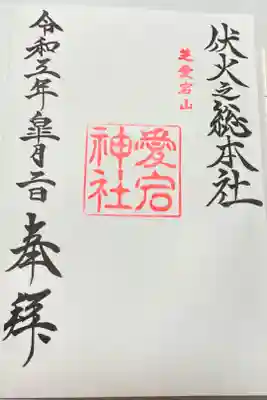 伏火之總本社
芝愛宕山
愛宕
神社
令和五年皐月二日
奉拜